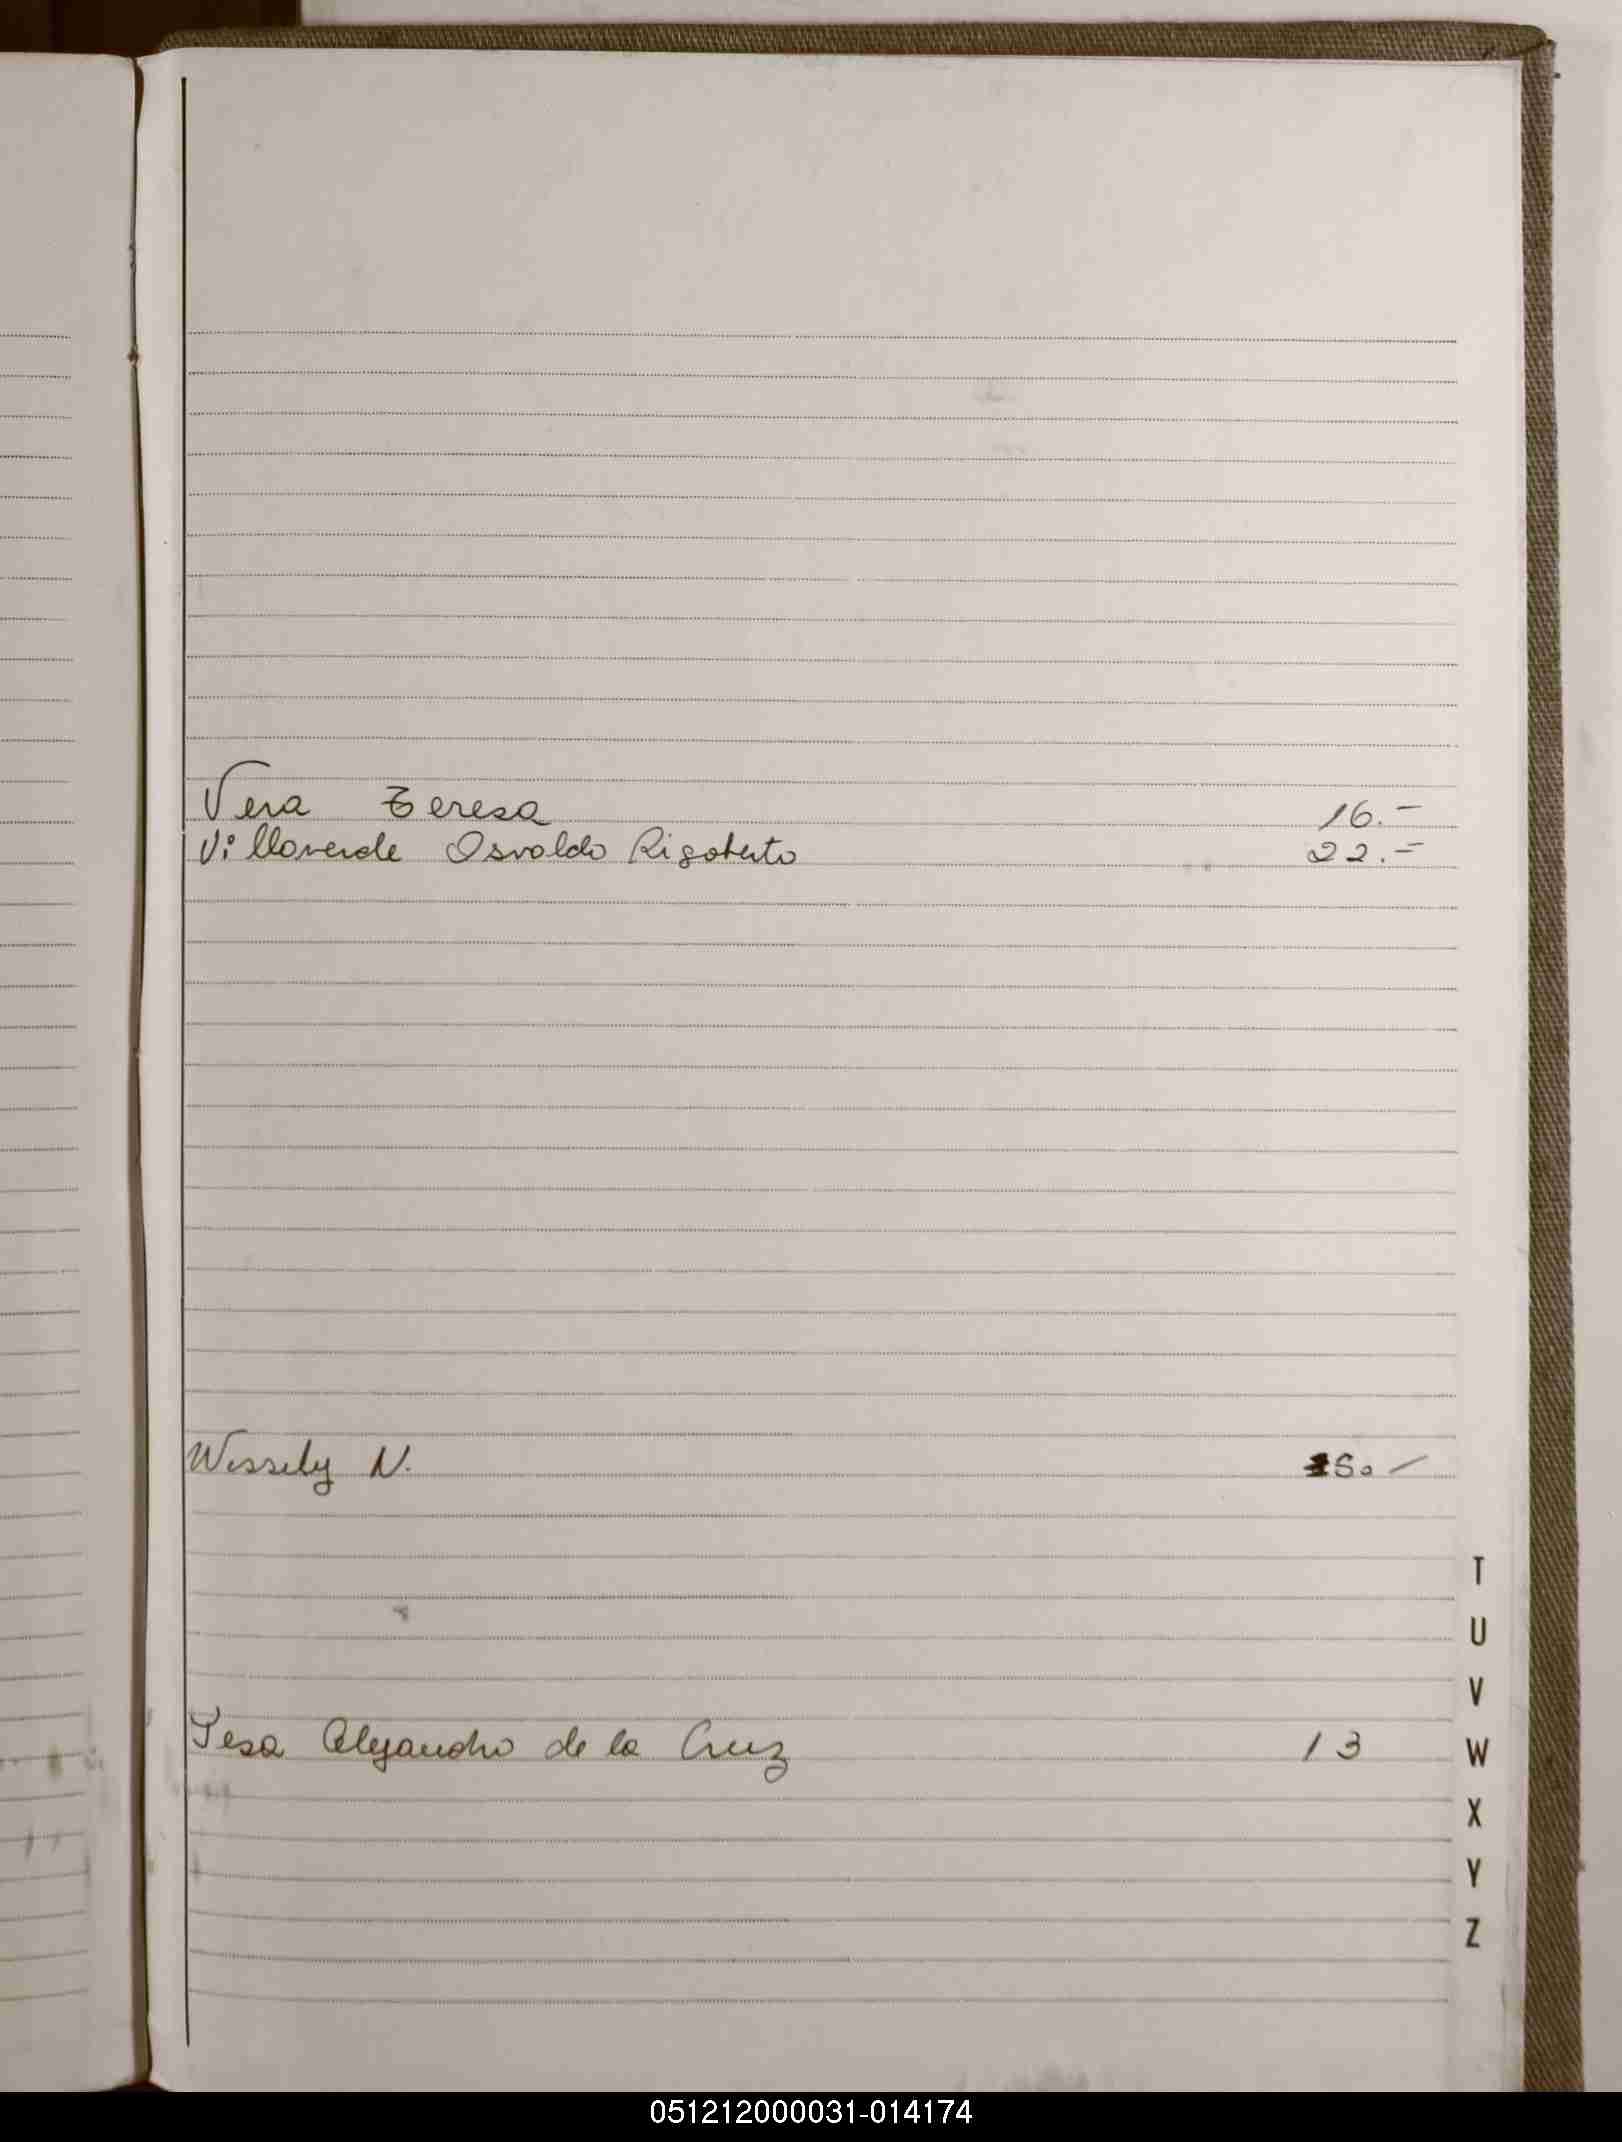 Vera Teresa 16.-
Villaverde Osvaldo Rigoberto 22.-
Wessely N. 50 -
Yesa Alejandro de la Cruz 13
T
U
V
W
X
Y
Z
051212000031-014174